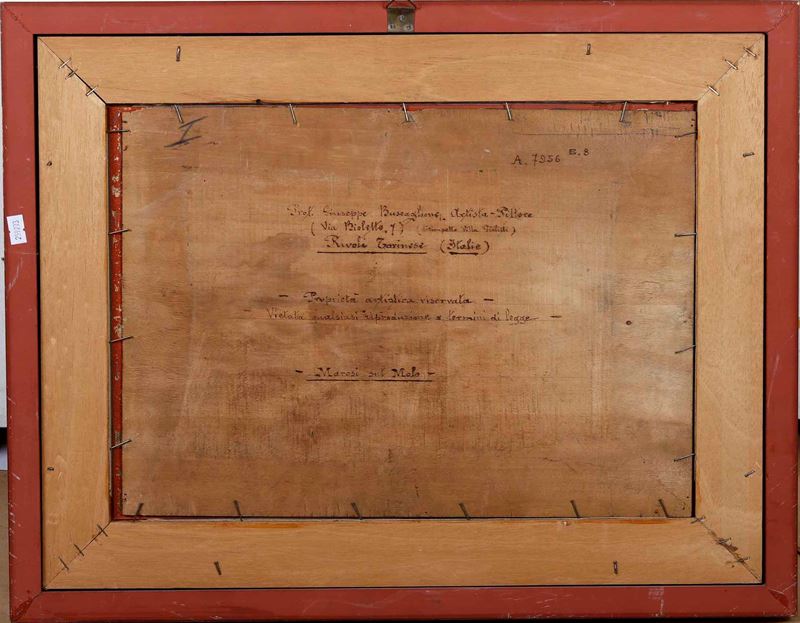 I
A. 7956 E. 8
Prof. Giuseppe Buscaglione, Artista-Pittore
(Via Bioletto, 7) (Villa
Rivoli Torinese (Italie)
- Proprietà artistica riservata -
Vietata qualsiasi riproduzione a termini di legge -
- Marosi sul Molo -